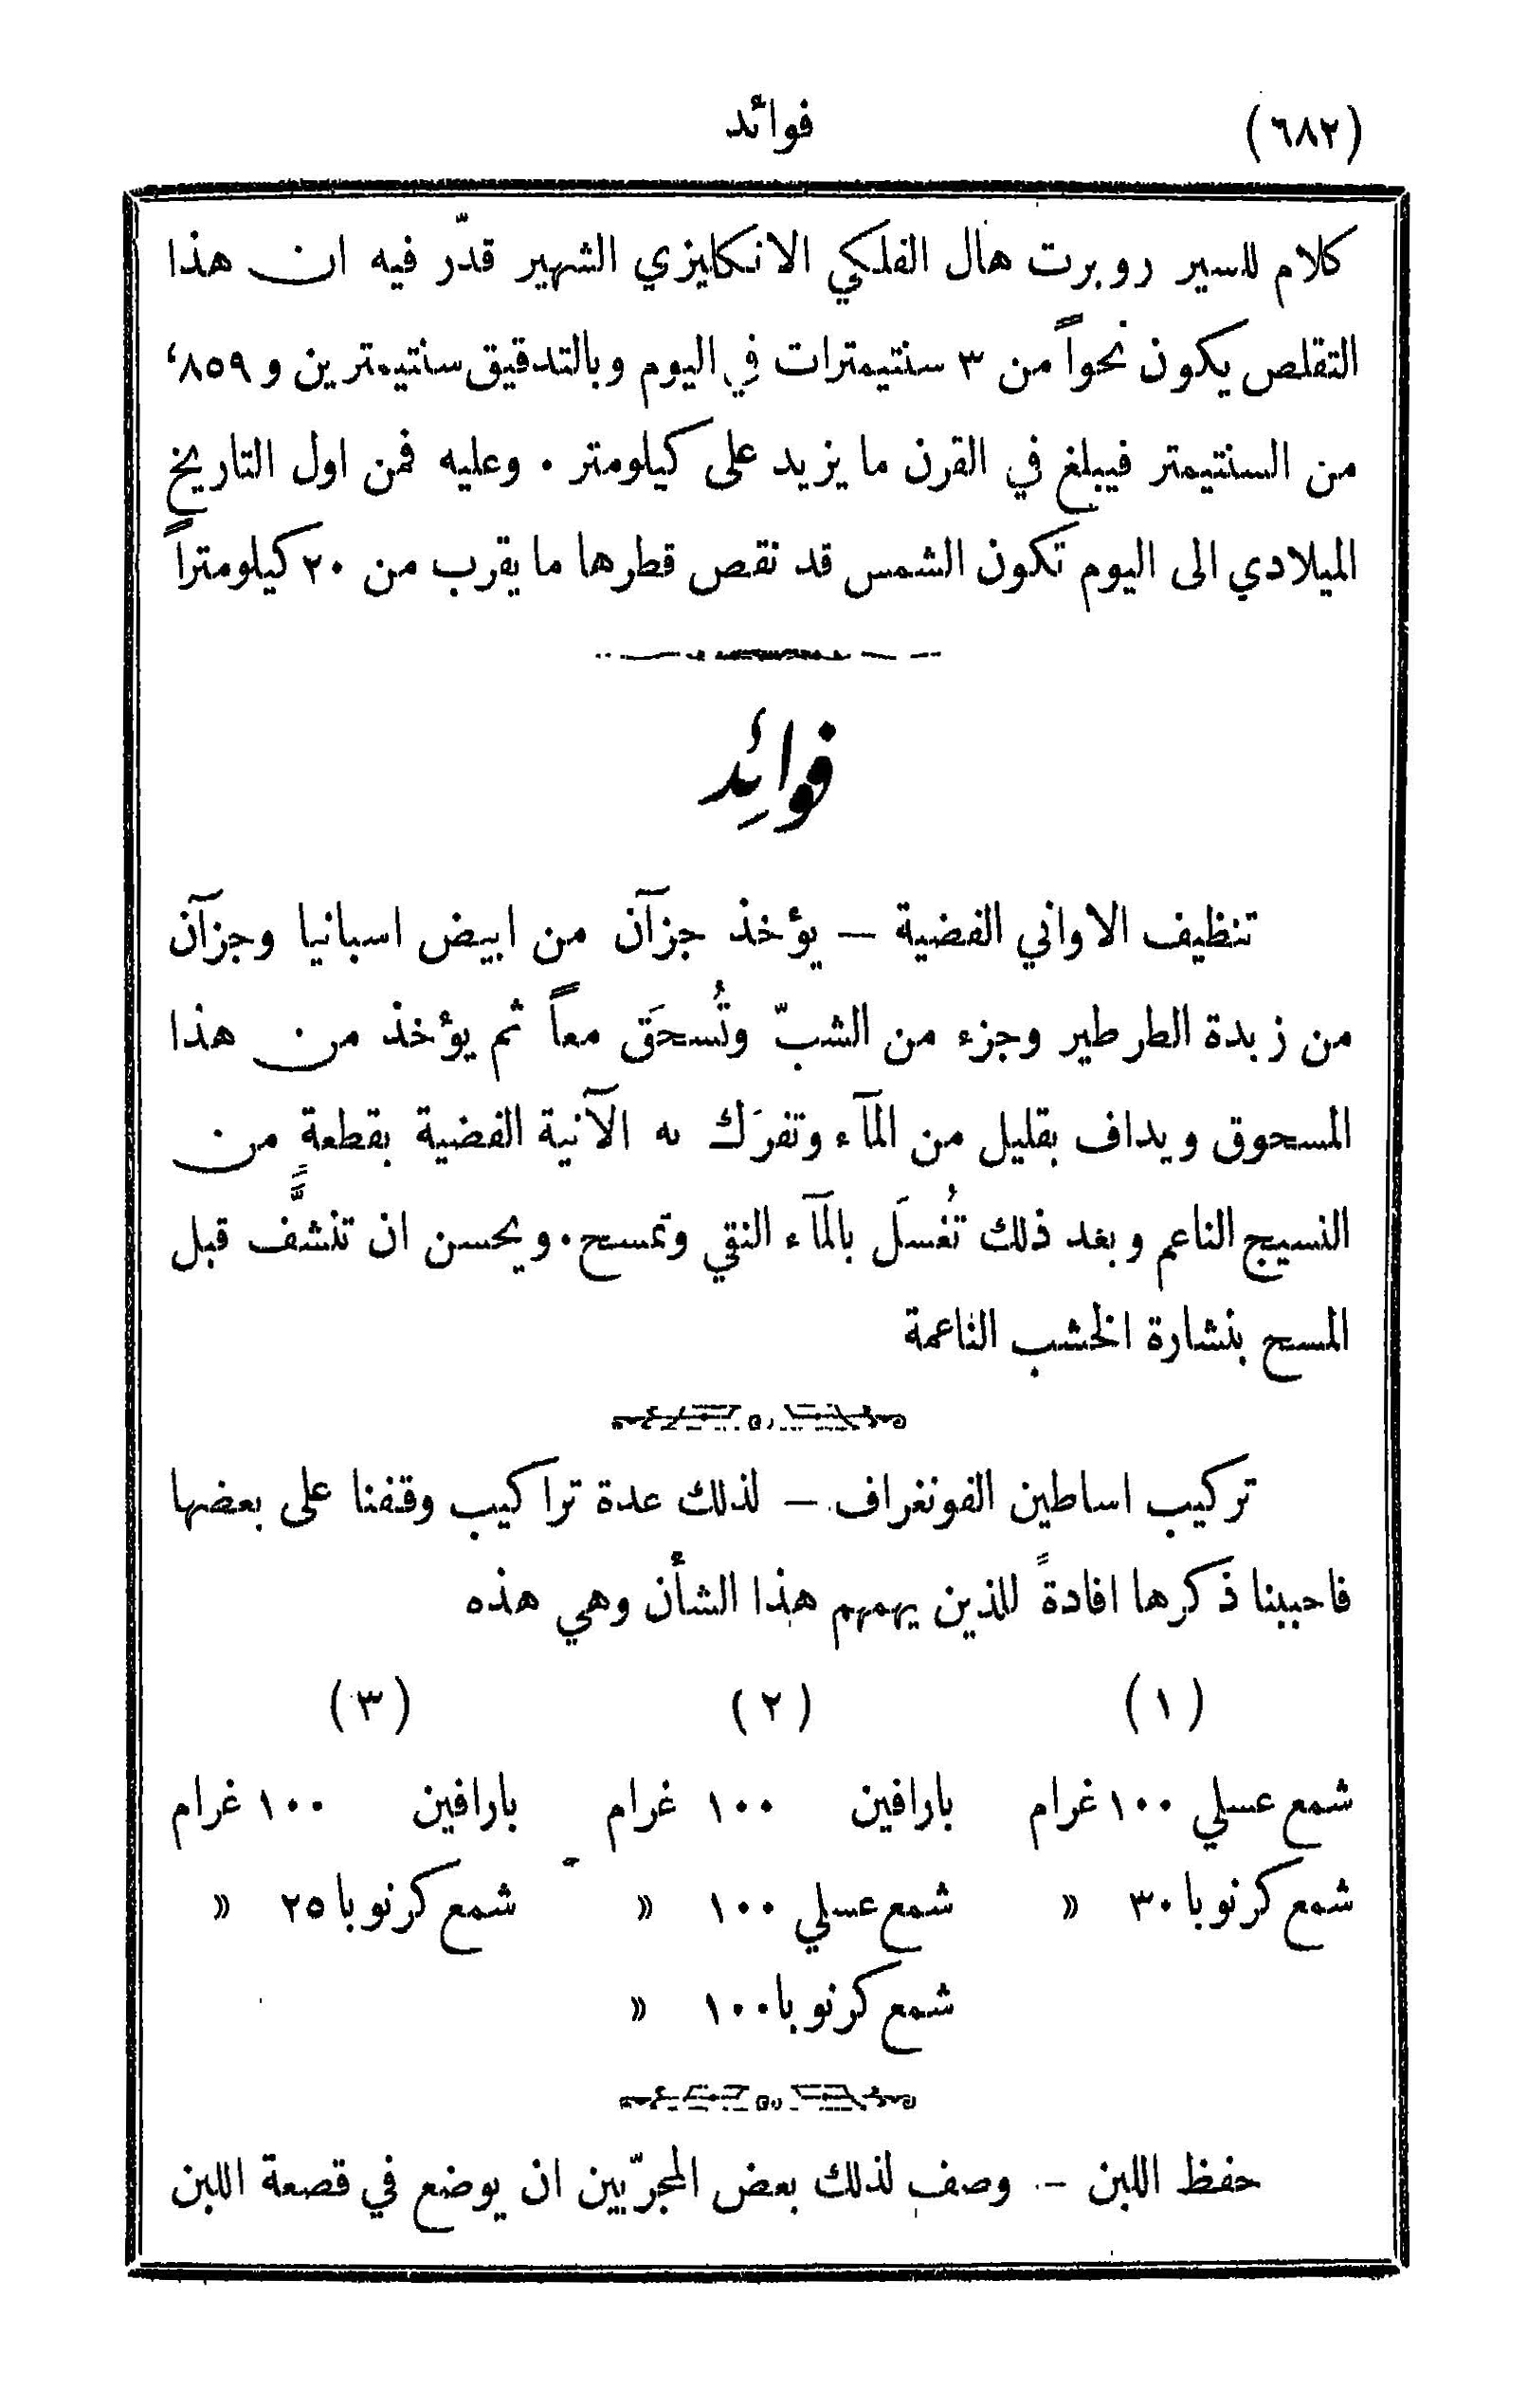 (٦٨٢) فوائد
كلام للسير روبرت هال الفلكي الانكليزي الشهير قدّر فيه ان هذا
التقلص يكون نحواً من ٣ سنتيمترات في اليوم وبالتدقيق سنتيمترين و ٨٥٩،
من السنتيمتر فيبلغ في القرن ما يزيد على كيلومتر . وعليه فمن اول التاريخ
الميلادي الى اليوم تكون الشمس قد نقص قطرها ما يقرب من ٢٠ كيلومتراً
فوائِد
تنظيف الاواني الفضية — يؤخذ جزآن من ابيض اسبانيا وجزآن
من زبدة الطرطير وجزء من الشبّ وتُسحَق معاً ثم يؤخذ من هذا
المسحوق ويداف بقليل من المآء وتفرَك به الآنية الفضية بقطعةٍ من
النسيج الناعم وبعد ذلك تُغسَل بالمآء النقي وتمسح. ويحسن ان تنشَّف قبل
المسح بنشارة الخشب الناعمة
تركيب اساطين الفونغراف — لذلك عدة تراكيب وقفنا على بعضها
فاحببنا ذكرها افادةً للذين يهمهم هذا الشأن وهي هذه
(١) (٢) (٣)
شمع عسلي ١٠٠ غرام بارافين ١٠٠ غرام بارافين ١٠٠ غرام
شمع كرنوبا ٣٠ » شمع عسلي ١٠٠ » شمع كرنوبا ٢٥ »
شمع كرنوبا ١٠٠ »
حفظ اللبن — وصف لذلك بعض المجرّبين ان يوضع في قصعة اللبن